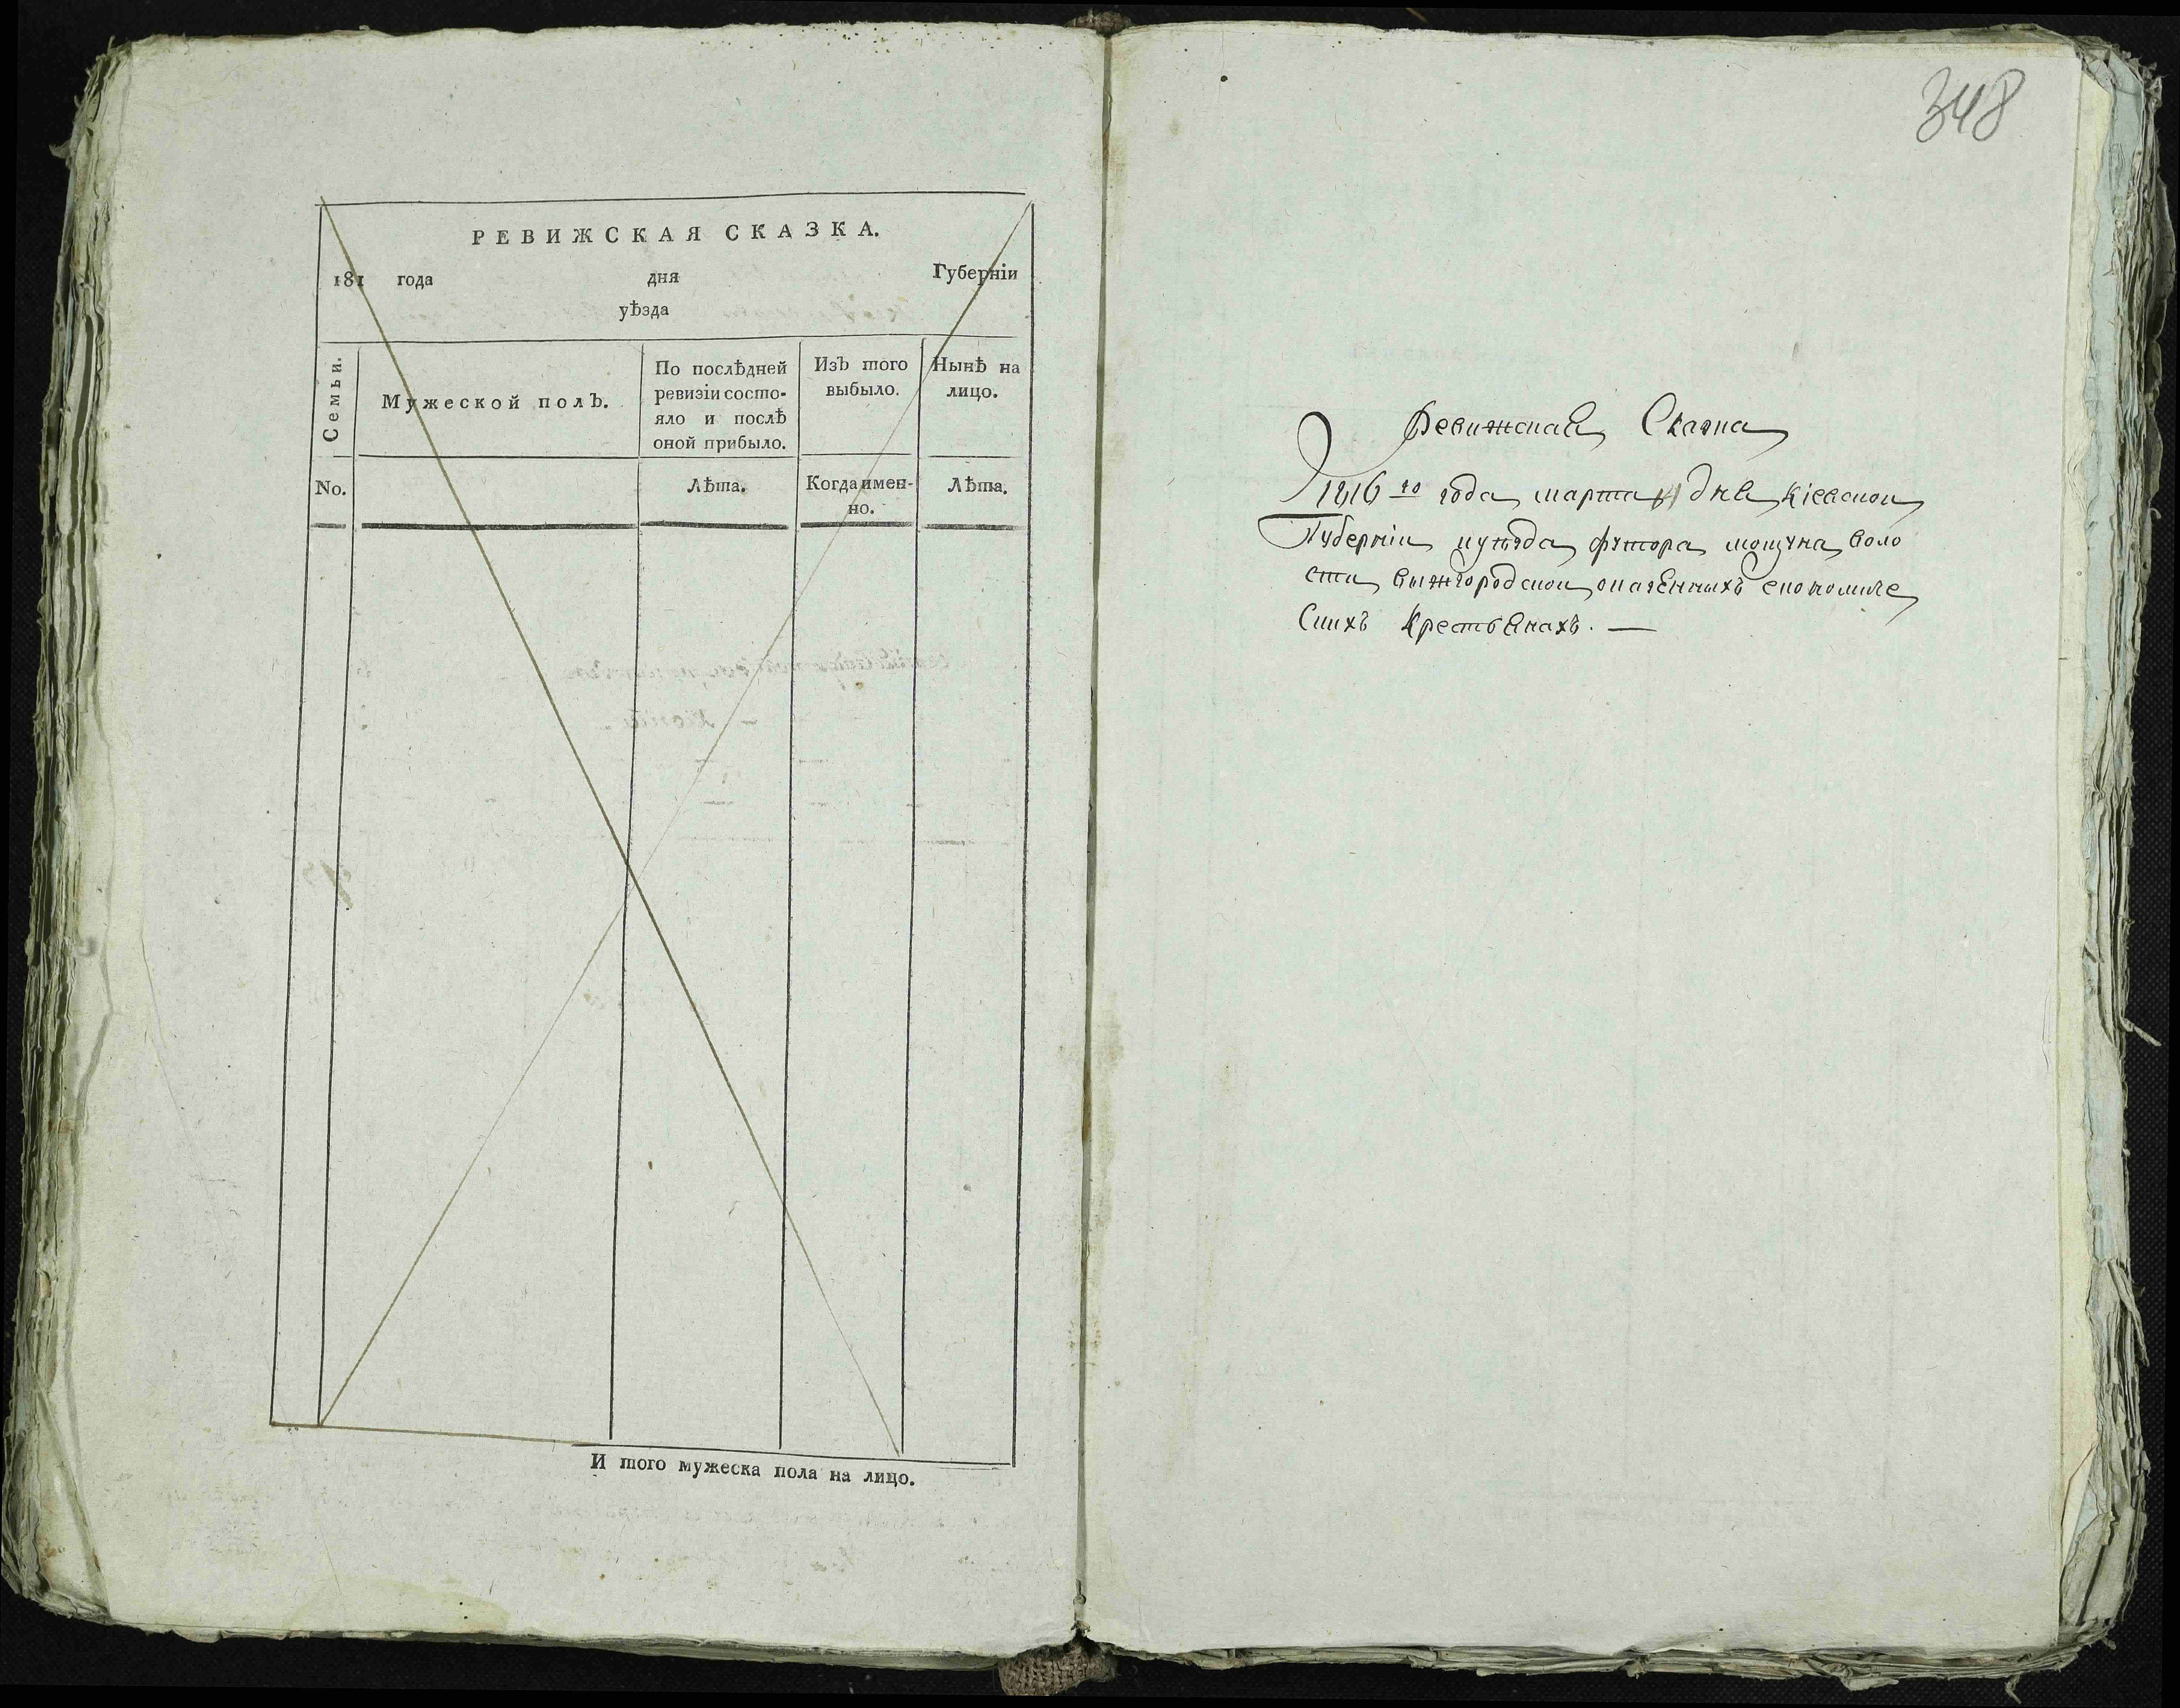 РЕВИЖСКАЯ СКАЗКА.
181 года дня Губернїи
уѣзда
Семьи.
Мужеской полъ.
По послѣдней ревизїи состо-
яло и послѣ
оной прибыло.
Изъ того
выбыло.
Нынѣ на
лицо.
No.
Лѣта.
Когда имен-
но.
Лѣта.
И того мужеска пола на лицо.
348
Ревижская Сказка
1816го года марта дня киевскои
Губернїи иуѣзда футора мощуна воло
сти вышгородскои оказенныхъ економиче
скихъ крестьянахъ. —